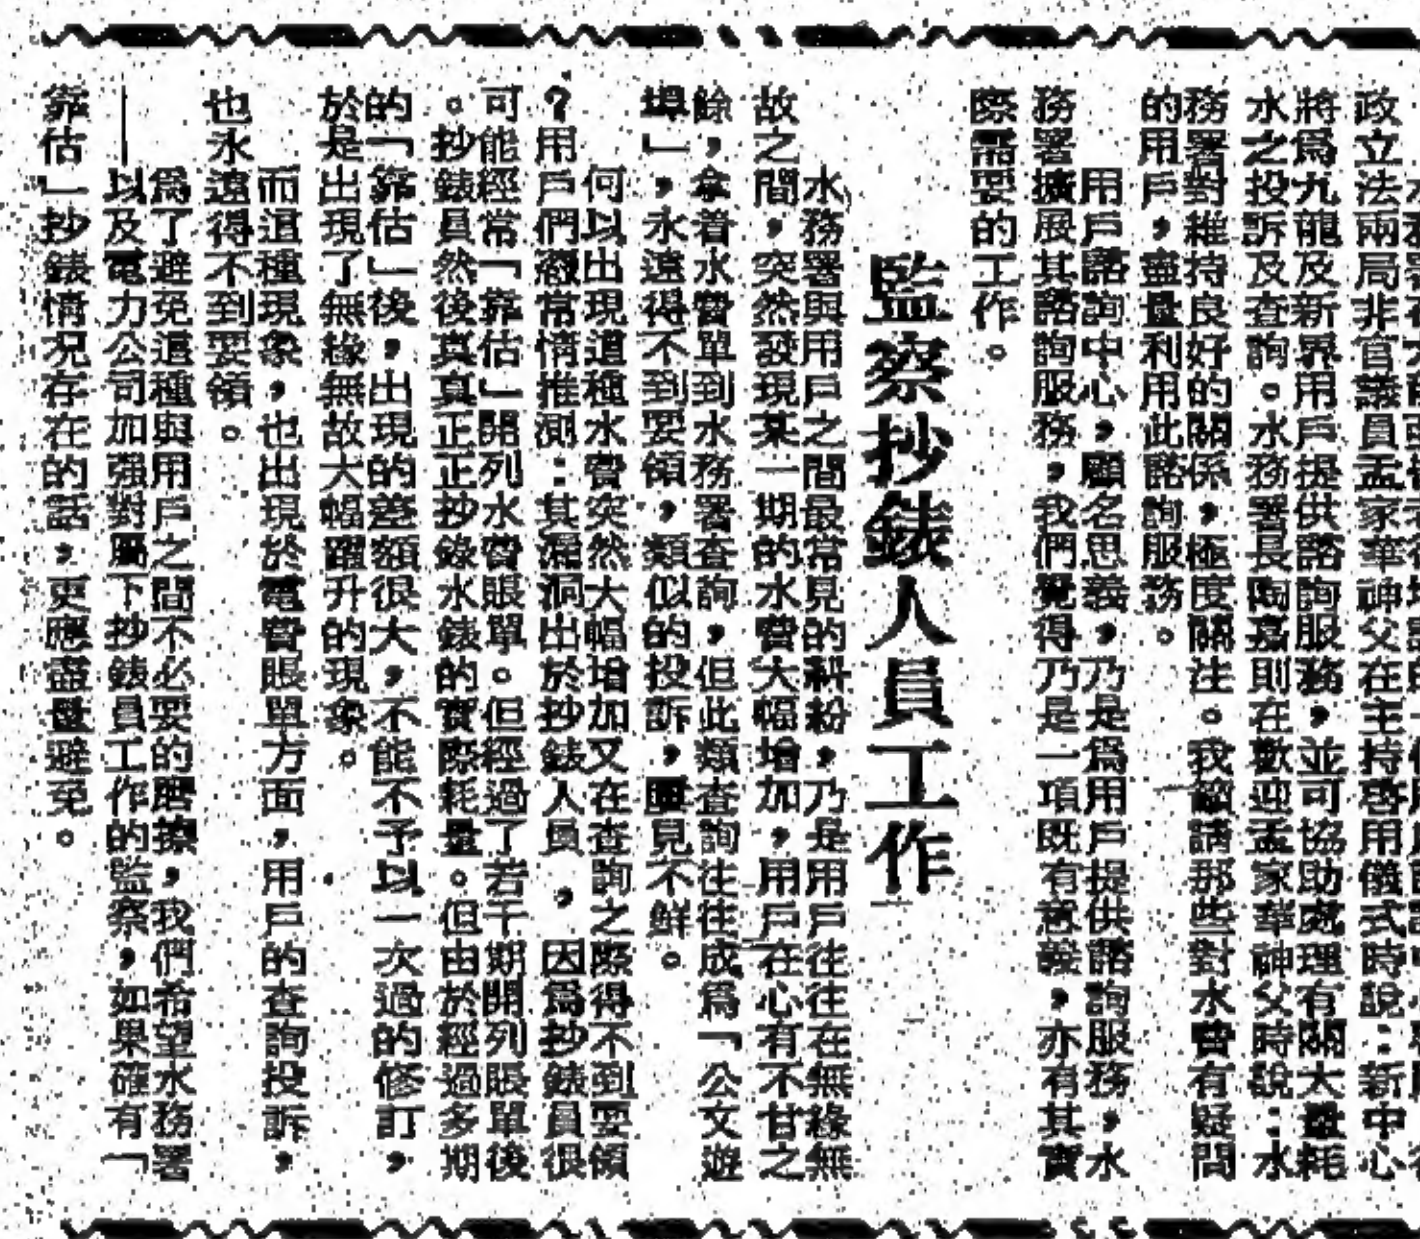 政立法兩局非官議員孟家華神父在主持啓用儀式時說：新中心
將爲九龍及新界用戶提供諮詢服務，並可協助處理有關大量耗
水之投訴及查詢。水務署長陶嘉則在歡迎孟家華神父時說：水
務署對維持良好的關係，極度關注。我敬請那些對水費有疑問
的用戶，盡量利用此諮詢服務。
用戶諮詢中心，顧名思義，乃是爲用戶提供諮詢服務，水
務署擴展其諮詢服務，我們覺得乃是一項既有意義，亦有其實
際需要的工作。
監察抄錶人員工作
水務署與用戶之間最常見的糾紛，乃是用戶往往在無緣無
故之間，突然發現某一期的水費大幅增加，用戶在心有不甘之
餘，拿着水費單到水務署查詢，但此類查詢往往成爲「公文遊
埠」，永遠得不到要領，類似的投訴，屢見不鮮。
何以出現這種水費突然大幅增加又在查詢之際得不到要領
？用戶們憑常情推測：其漏洞出於抄錶人員，因爲抄錶員很
可能經常「靠估」開列水費賬單。但經過了若干期開列賬單後
。抄錶員然後真真正正抄錄水錶的實際耗量。但由於經過多期
的「靠估」後，出現的差額很大，不能不予以一次過的修訂，
於是出現了無緣無故大幅躍升的現象。
而這種現象，也出現於電費賬單方面，用戶的查詢投訴，
也永遠得不到要領。
爲了避免這種與用戶之間不必要的磨擦，我們希望水務署
——以及電力公司加強對屬下抄錶員工作的監察，如果確有「
靠估」抄錶情況存在的話，更應盡量避免。